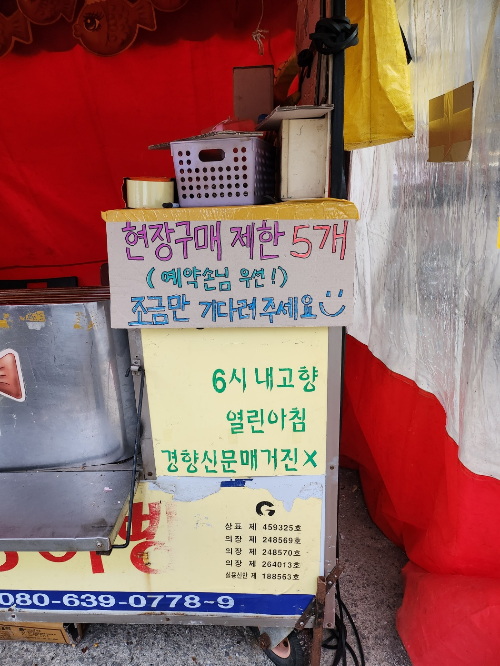 현장구매 제한 5개
(예약손님 우선!)
조금만 기다려주세요
6시내고향
열린아침
경향신문매거진X
상표 제 459325호
의장 제 248569호
의장 제 248570호
의장 제 264013호
실용신안 제 188563호
080-639-0778~9